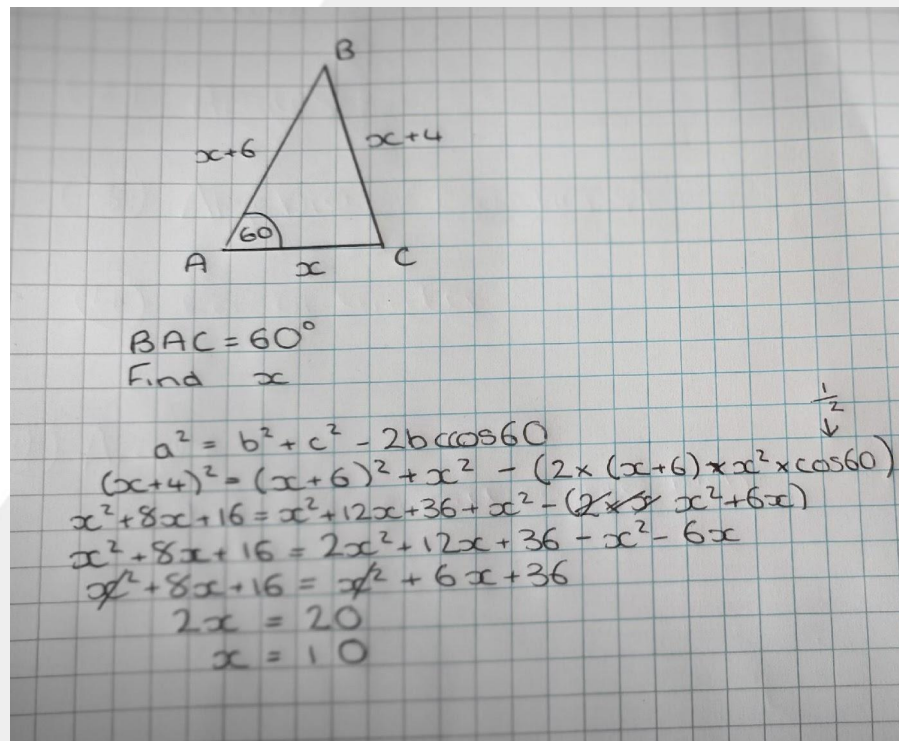 B
x+6
x+4
60
A
x
C
BAC = 60°
Find x
1/2
↓
a² = b² + c² - 2bccos60
(x+4)² = (x+6)² + x² - (2 × (x+6) × x² × cos60)
x² + 8x + 16 = x² + 12x + 36 + x² - (2 × x x² + 6x)
x² + 8x + 16 = 2x² + 12x + 36 - x² - 6x
x² + 8x + 16 = x² + 6x + 36
2x = 20
x = 10